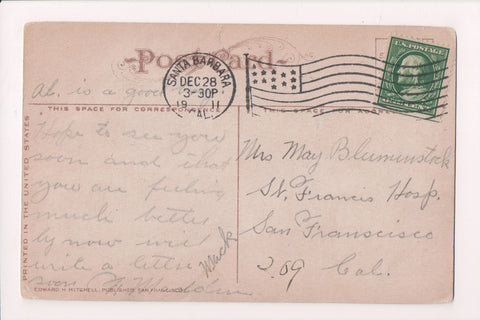 Post Card
SANTA BARBARA
DEC 28
3-30P
19 11
CAL.
U.S. POSTAGE
Al. is a good
THIS SPACE FOR CORRESPONDENCE
THIS SPACE FOR
Hope to see you
soon and that
you are feeling
much better
by now will
write a letter
soon
Mrs May Blumenstock
St. Francis Hosp.
San Franscisco
209 Cal.
PRINTED IN THE UNITED STATES
EDWARD H. MITCHELL, PUBLISHER, SAN FRANCISCO